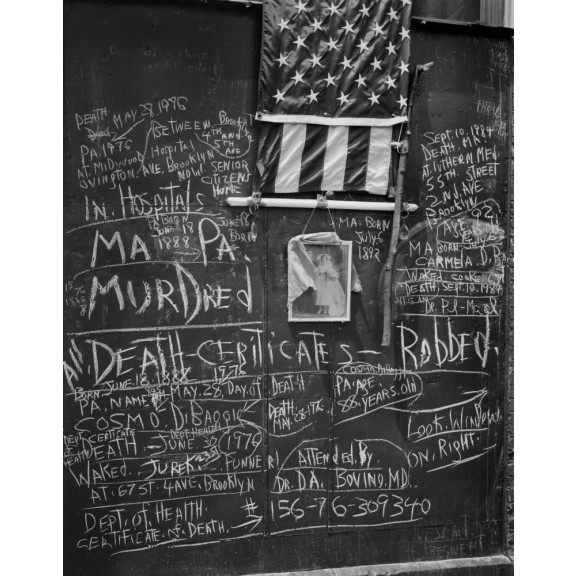 DEATH MAY 28, 1976
Died
BETWEEN
4TH AND
5TH AVE
PA 1976
AT MIDWOOD Hospital
OVINGTON. AVE. BROOKLYN
NOW SENIOR
CITIZENS
HOME
IN. HOSPITALS
PA BORN
JUNE 18
1888
MA PA.
MURDRed
MA. BORN
JULY 6
1892
SEPT. 10. 1984
DEATH. MA.
AT LUTHERN MED.
55TH. STREET
2ND. AVE.
BROOKLYN
92
MA BORN July 6
CARMELA. D. B.
WAKED COOKE
DEATH, SEPT. 10. 1984
DEATH-CERITICATES- Robbed.
BORN. JUNE. 18 1888 1976
PA. NAME MAY. 28, DAY. of DEATH
COSMO. DiBaggio
DEATH.
MAY. 28. 1976
PA. ARE.
88. YEARS. Old
DEATH - JUNE 30 1976
WAKED. JUREK FUNNERL
AT. 67 ST. 4 AVE. BROOKLYN
Attended. By
DR. DA. BOVINO. MD.
Look. WINDOW.
ON. Right.
DEPT. of. HEALTH.
CERTIFICATE. of. DEATH. # 156-76-309340